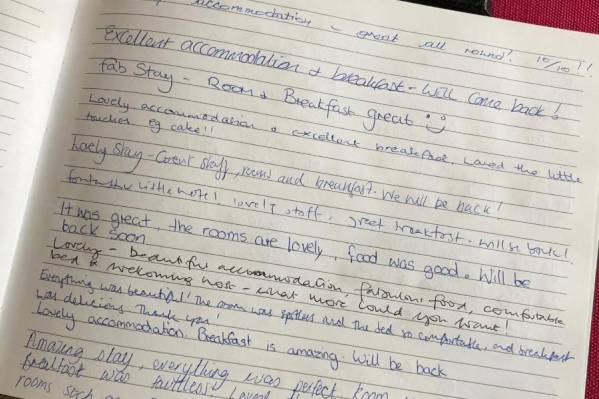 accommodation - great all round! 10/10!!
Excellent accommodation & breakfast - Will come back!
Fab Stay - Room & Breakfast great
Lovely accommodation & excellent breakfast. Loved the little
touches eg cake!!
Lovely Stay - Great staff, rooms and breakfast. We will be back!
Fantastic little hotel, lovely staff, great breakfast. Will be back!
It was great, the rooms are lovely, food was good. Will be
back soon
Lovely - beautiful accommodation, fabulous food, comfortable
bed & welcoming host - what more could you want!
Everything was beautiful! The room was spotless and the bed so comfortable, and breakfast
was delicious Thank you!
Lovely accommodation. Breakfast is amazing. Will be back
Amazing stay, everything was perfect. Room
Breakfast was faultless. Loved
rooms such